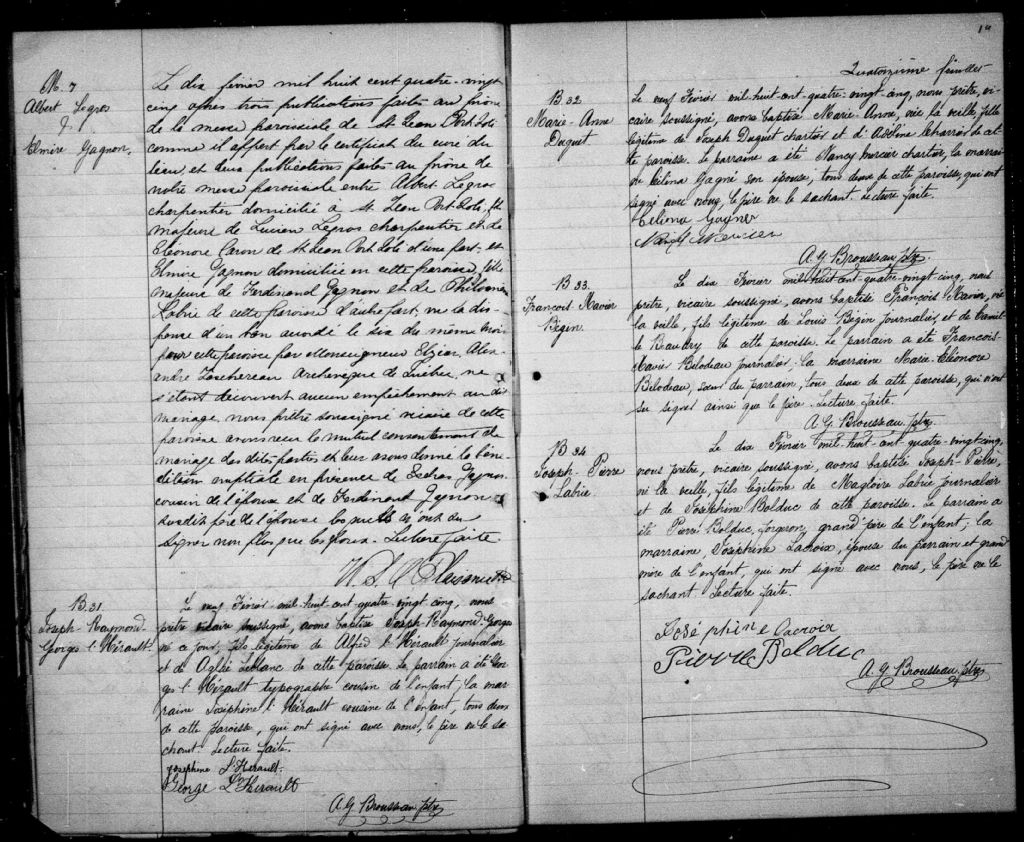 M. 7
Albert Legros
&
Elmire Gagnon,
Le dix février mil huit cent quatre-vingt
cinq après trois publications faites au prône
de la messe paroissiale de St Jean Port Joli
comme il appert par le certificat du curé du
lieu, et deux publications faites au prône de
notre messe paroissiale entre Albert Legros
charpentier domicilié à St Jean Port Joli, fils
majeur de Lucien Legros charpentier et de
Eléonore Caron de St Jean Port Joli d'une part, et
Elmire Gagnon domiciliée en cette paroisse, fille
majeure de Ferdinand Gagnon et de Philomène
Labrie de cette paroisse d'autre part, vu la dis-
pense d'un ban accordé le six du même mois
pour cette paroisse par Monseigneur Elzéar Alex-
andre Taschereau Archevêque de Québec, ne
s'étant découvert aucun empêchement au dit
mariage nous prêtre soussigné vicaire de cette
paroisse avons reçu le mutuel consentement de
mariage des dites parties et leur avons donné la béné-
diction nuptiale en présence de Gagnon
cousin de l'épouse et de Ferdinand Gagnon
susdit père de l'épouse lesquels n'ont su
signer non plus que les époux. Lecture faite
B. 31.
Joseph-Raymond-
Georges l'Hérault.
Le neuf Février mil-huit-cent-quatre vingt cinq, nous
prêtre vicaire soussigné, avons baptisé Joseph-Raymond-Georges
né ce jour, fils légitime de Alfred l'Hérault journalier
et de Aglée Leblanc de cette paroisse. Le parrain a été Geor-
ges l'Hérault typographe cousin de l'enfant; la mar-
raine Joséphine l'Hérault cousine de l'enfant, tous deux
de cette paroisse, qui ont signé avec nous, le père ne le sa-
chant. Lecture faite.
Josephine L'Herault.
George L'Herault
A. G. Brousseau ptre
14
Quatorzième feuillet
B 32
Marie-Anne
Duguet
Le neuf Février mil-huit-cent-quatre-vingt-cinq, nous prêtre, vi-
caire soussigné, avons baptisé Marie-Anne, née la veille, fille
légitime de Joseph Duguet charton et d' de cet-
te paroisse. Le parrain a été Nancy Mercier charton, la marrai-
ne Célina Gagné son épouse, tous deux de cette paroisse, qui ont
signé avec nous, le père ne le sachant. Lecture faite.
Celiena Gagner
Mercier
A. G. Brousseau ptre.
B 33.
François Xavier
Bégin.
Le dix Février mil-huit-cent-quatre-vingt-cinq, nous
prêtre, vicaire soussigné, avons baptisé François Xavier, né
la veille, fils légitime de Louis Bégin journalier, et de
Beaudry de cette paroisse. Le parrain a été François-
Xavier Bilodeau journalier; la marraine Marie-Eléonore
Bilodeau, soeur du parrain, tous deux de cette paroisse, qui n'ont
su signer ainsi que le père. Lecture faite.
A. G. Brousseau ptre.
B 34
Joseph-Pierre
Labrie
Le dix Février mil-huit-cent-quatre-vingt-cinq,
nous prêtre, vicaire soussigné, avons baptisé Joseph-Pierre,
né la veille, fils légitime de Magloire Labrie journalier
et de Joséphine Bolduc de cette paroisse. Le parrain a
été Pierre Bolduc, forgeron, grand-père de l'enfant; la
marraine, Joséphine Lacroix, épouse du parrain et grand-
mère de l'enfant, qui ont signé avec nous, le père ne le
sachant Lecture faite.
Joséphine Lacroix
Pierre Bolduc
A. G. Brousseau ptre